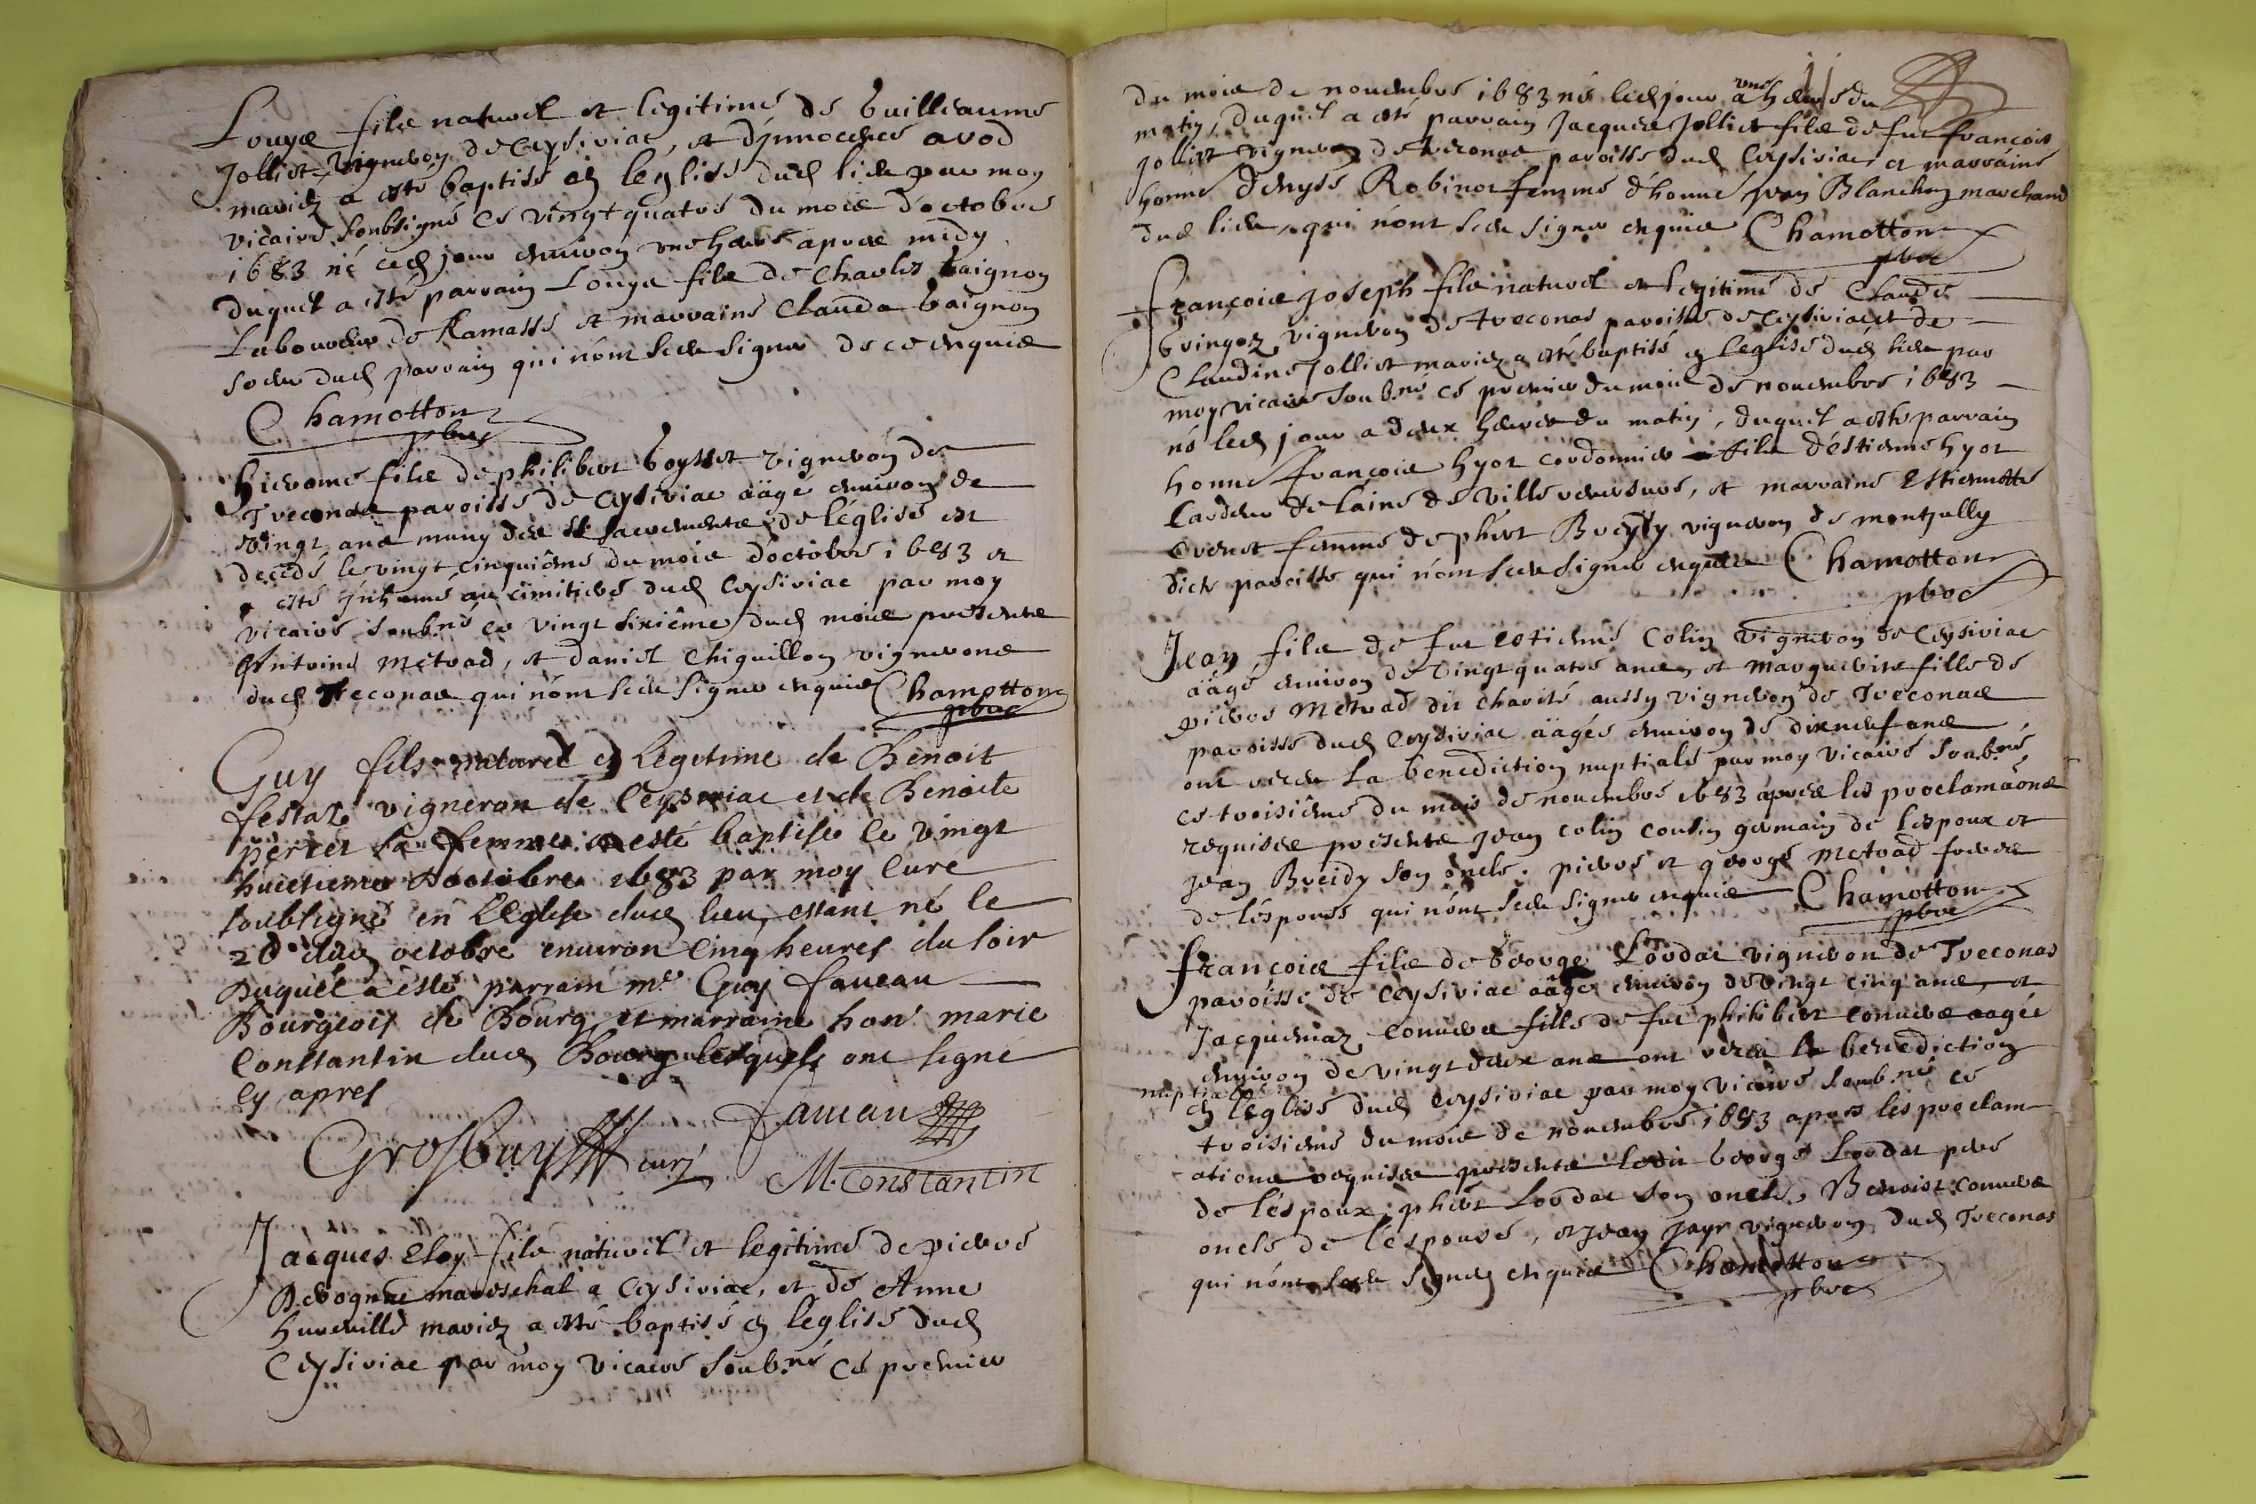 Louys fils naturel et legitime de Guilleaume
Jolliet vigneron de Ceysiriac, et d'jnnocence avod
mariez a esté baptisé en leglise dud lieu par moy
vicaire soubsigné ce vingt quatre du mois d'octobre
1683 né ced jour environ une heure apres midy
duquel a esté parrain Louys fils de Charles Gaignon
Laboureur de Ramasse et marraine Clauda Gaignon
soeur dud parrain qui n'ont sceu signer de ce enquis
Chamotton
pbre
Hierome fils de philibert Goysset vigneron de
Treconas paroisse de Ceysiriac aägé environ de
vingt ans muny des Sts sacrements de l'église est
decedé le vingt cinquième du mois d'octobre 1683 et
a esté jnhumé au cimitiere dud Ceysiriac par moy
vicaire soub.né ce vingt sixième dud mois presents
Antoine Metrad, et daniel Chiquillon vignerons
dud Treconas qui n'ont sceu signer enquis Chamotton
pbre
Guy fils naturel et Legitime de Benoit
festaz vigneron de Ceyseriac et de Benoite
perret sa femme a esté baptise le vingt
huictieme doctobre 1683 par moy Curé
soubsigné en l'Eglise dud lieu, estant né le
20 dud octobre environ Cinq heures du soir
Duquel a esté parrain mr Guy faueau
Bourgeois de Bourg et marraine hon. marie
Constantin dud Bourg lesquels ont signé
Cy apres
Faueau
GrosGuy curé
M. Constantin
Jacques Eloy fils naturel et legitime de pierre
mareschal a Ceysiriac, et de Anne
mariez a esté baptisé en leglise dud
Ceysiriac par moy vicaire soub.né ce premier
11
du mois de novembre 1683 né led jour a une heure du
matin, duquel a esté parrain Jacques Jolliet fils de fut françois
jolliet vigneron de treconas paroisse dud Ceysiriac et marraine
honne denyse Robinot femme d'honne jean Blanchon marchand
dud lieu, qui n'ont sceu signer enquis Chamotton
pbre
françois joseph fils naturel et legitime de Claude
Gringoz vigneron de treconas paroisse de Ceysiriac et de
Claudine Jolliet mariez a esté baptisé en leglise dud lieu par
moy vicaire soub.né ce premier du mois de novembre 1683
né led jour a deux heures du matin, duquel a esté parrain
honne françois hyot cordonnier fils d'estienne hyot
Cardeur de laine de villereversure, et marraine Estiennette
femme de phbert Breyty vigneron de montjully
dicte paroisse qui n'ont sceu signer enquis Chamotton
pbre
Jean fils de fut estienne Colin vigneron de Ceysiriac
aägé environ de vingt quatre ans, et marguerite fille de
pierre Metrad dit charité aussy vigneron de Treconas
paroisse dud Ceysiriac aägée environ de dixneuf ans
ont receu la benediction nuptiale par moy vicaire soub.né
ce troisieme du mois de novembre 1683 apres les proclamaōns
requises presents jean colin cousin germain de lespoux et
jean Breidy son oncle. pierre et george Metrad freres
de l'espouse qui n'ont sceu signer enquis Chamotton
pbre
françois fils de George Lordat vigneron de Treconas
paroisse de Ceysiriac aägé environ de vingt cinq ans, et
Jacquemaz Convers fille de fut philibert Convers aagée
environ de vingt deux ans ont receu la benediction
nuptiale
en leglise dud Ceysiriac par moy vicaire soub.né ce
troisieme du mois de novembre 1683 apres les proclam
ations requises presents ledit George Lordat pere
de l'espoux, phbert Lordat son oncle, Benoist Convers
oncle de l'espouse, et jean jayr vigneron dud Treconas
qui n'ont sceu signer enquis Chamotton
pbre